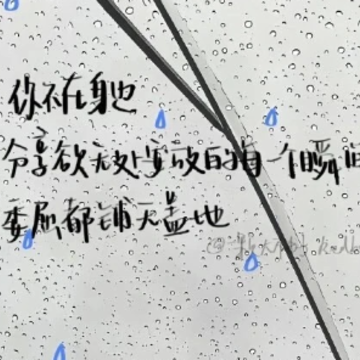 你不在身边
分享欲无处安放的每一个瞬间
委屈都铺天盖地